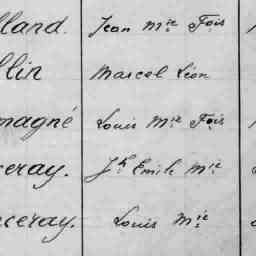 lland. Jean Mie Fois
llin Marcel Léon
magné Louis Mie Fois
ceray. Jh Emile Mie
ceray. Louis Mie